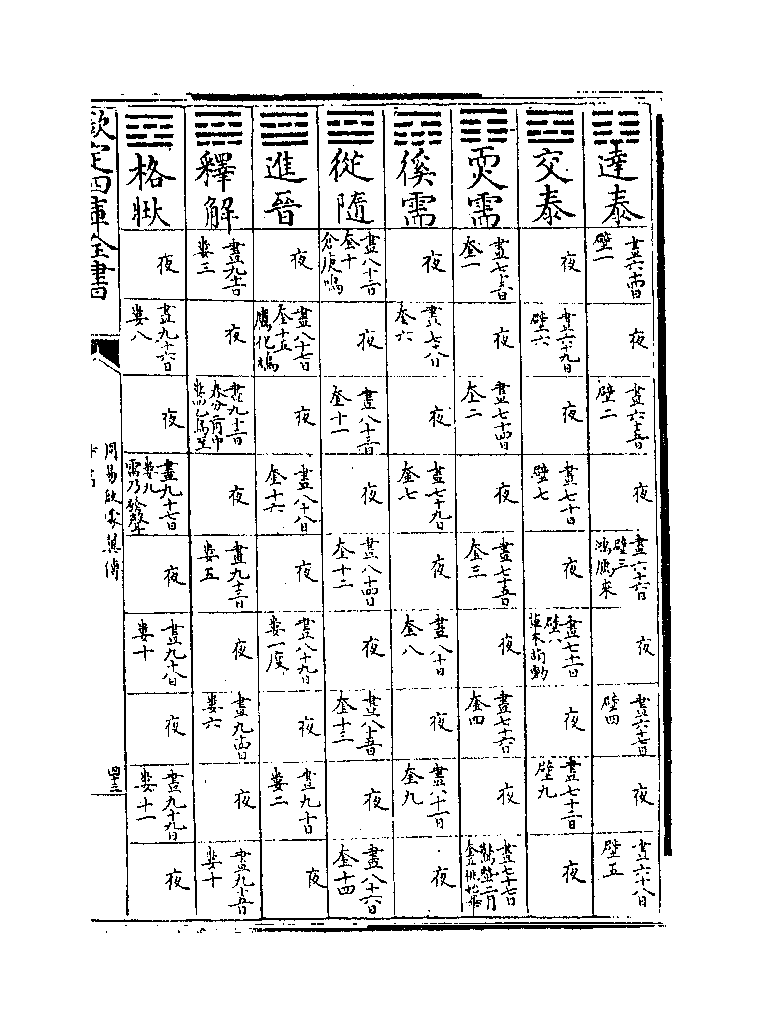 達泰
晝六十四日
壁一
夜
晝六十五日
壁二
夜
晝六十六日
壁三
鴻鴈來
夜
晝六十七日
壁四
夜
晝六十八日
壁五
交泰
夜
晝六十九日
壁六
夜
晝七十日
壁七
夜
晝七十一日
壁八
草木萌動
夜
晝七十二日
壁九
夜
需
晝七十三日
奎一
夜
晝七十四日
奎二
夜
晝七十五日
奎三
夜
晝七十六日
奎四
夜
晝七十七日
驚蟄二月
奎五桃始華
徯需
夜
晝七十八日
奎六
夜
晝七十九日
奎七
夜
晝八十日
奎八
夜
晝八十一日
奎九
夜
從隨
晝八十二日
奎十
倉庚鳴
夜
晝八十三日
奎十一
夜
晝八十四日
奎十二
夜
晝八十五日
奎十三
夜
晝八十六日
奎十四
進晉
夜
晝八十七日
奎十五
鷹化鳩
夜
晝八十八日
奎十六
夜
晝八十九日
婁一度
夜
晝九十日
婁二
夜
釋解
晝九十一日
婁三
夜
晝九十二日
春分二月中
婁四玄鳥至
夜
晝九十三日
婁五
夜
晝九十四日
婁六
夜
晝九十五日
婁十
格壯
夜
晝九十六日
婁八
夜
晝九十七日
婁九
雷乃發聲
夜
晝九十八日
婁十
夜
晝九十九日
婁十一
夜
欽定四庫全書
周易啟蒙翼傳
四十三